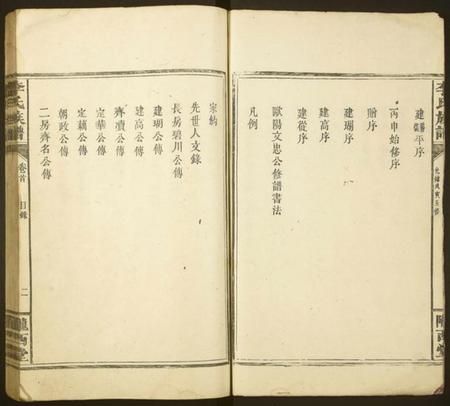 李氏族譜
光緒戊寅五修
隴西堂
建勳偀平序
丙申始修序
贈序
建瑚序
建高序
建從序
歐陽文忠公修譜書法
凡例
家納
先世人文錄
長房碧川公傳
建瑚公傳
建高公傳
齊瓚公傳
定華公傳
定藕公傳
朝政公傳
二房齊名公傳
李氏族譜
卷首
目錄
二
隴西堂